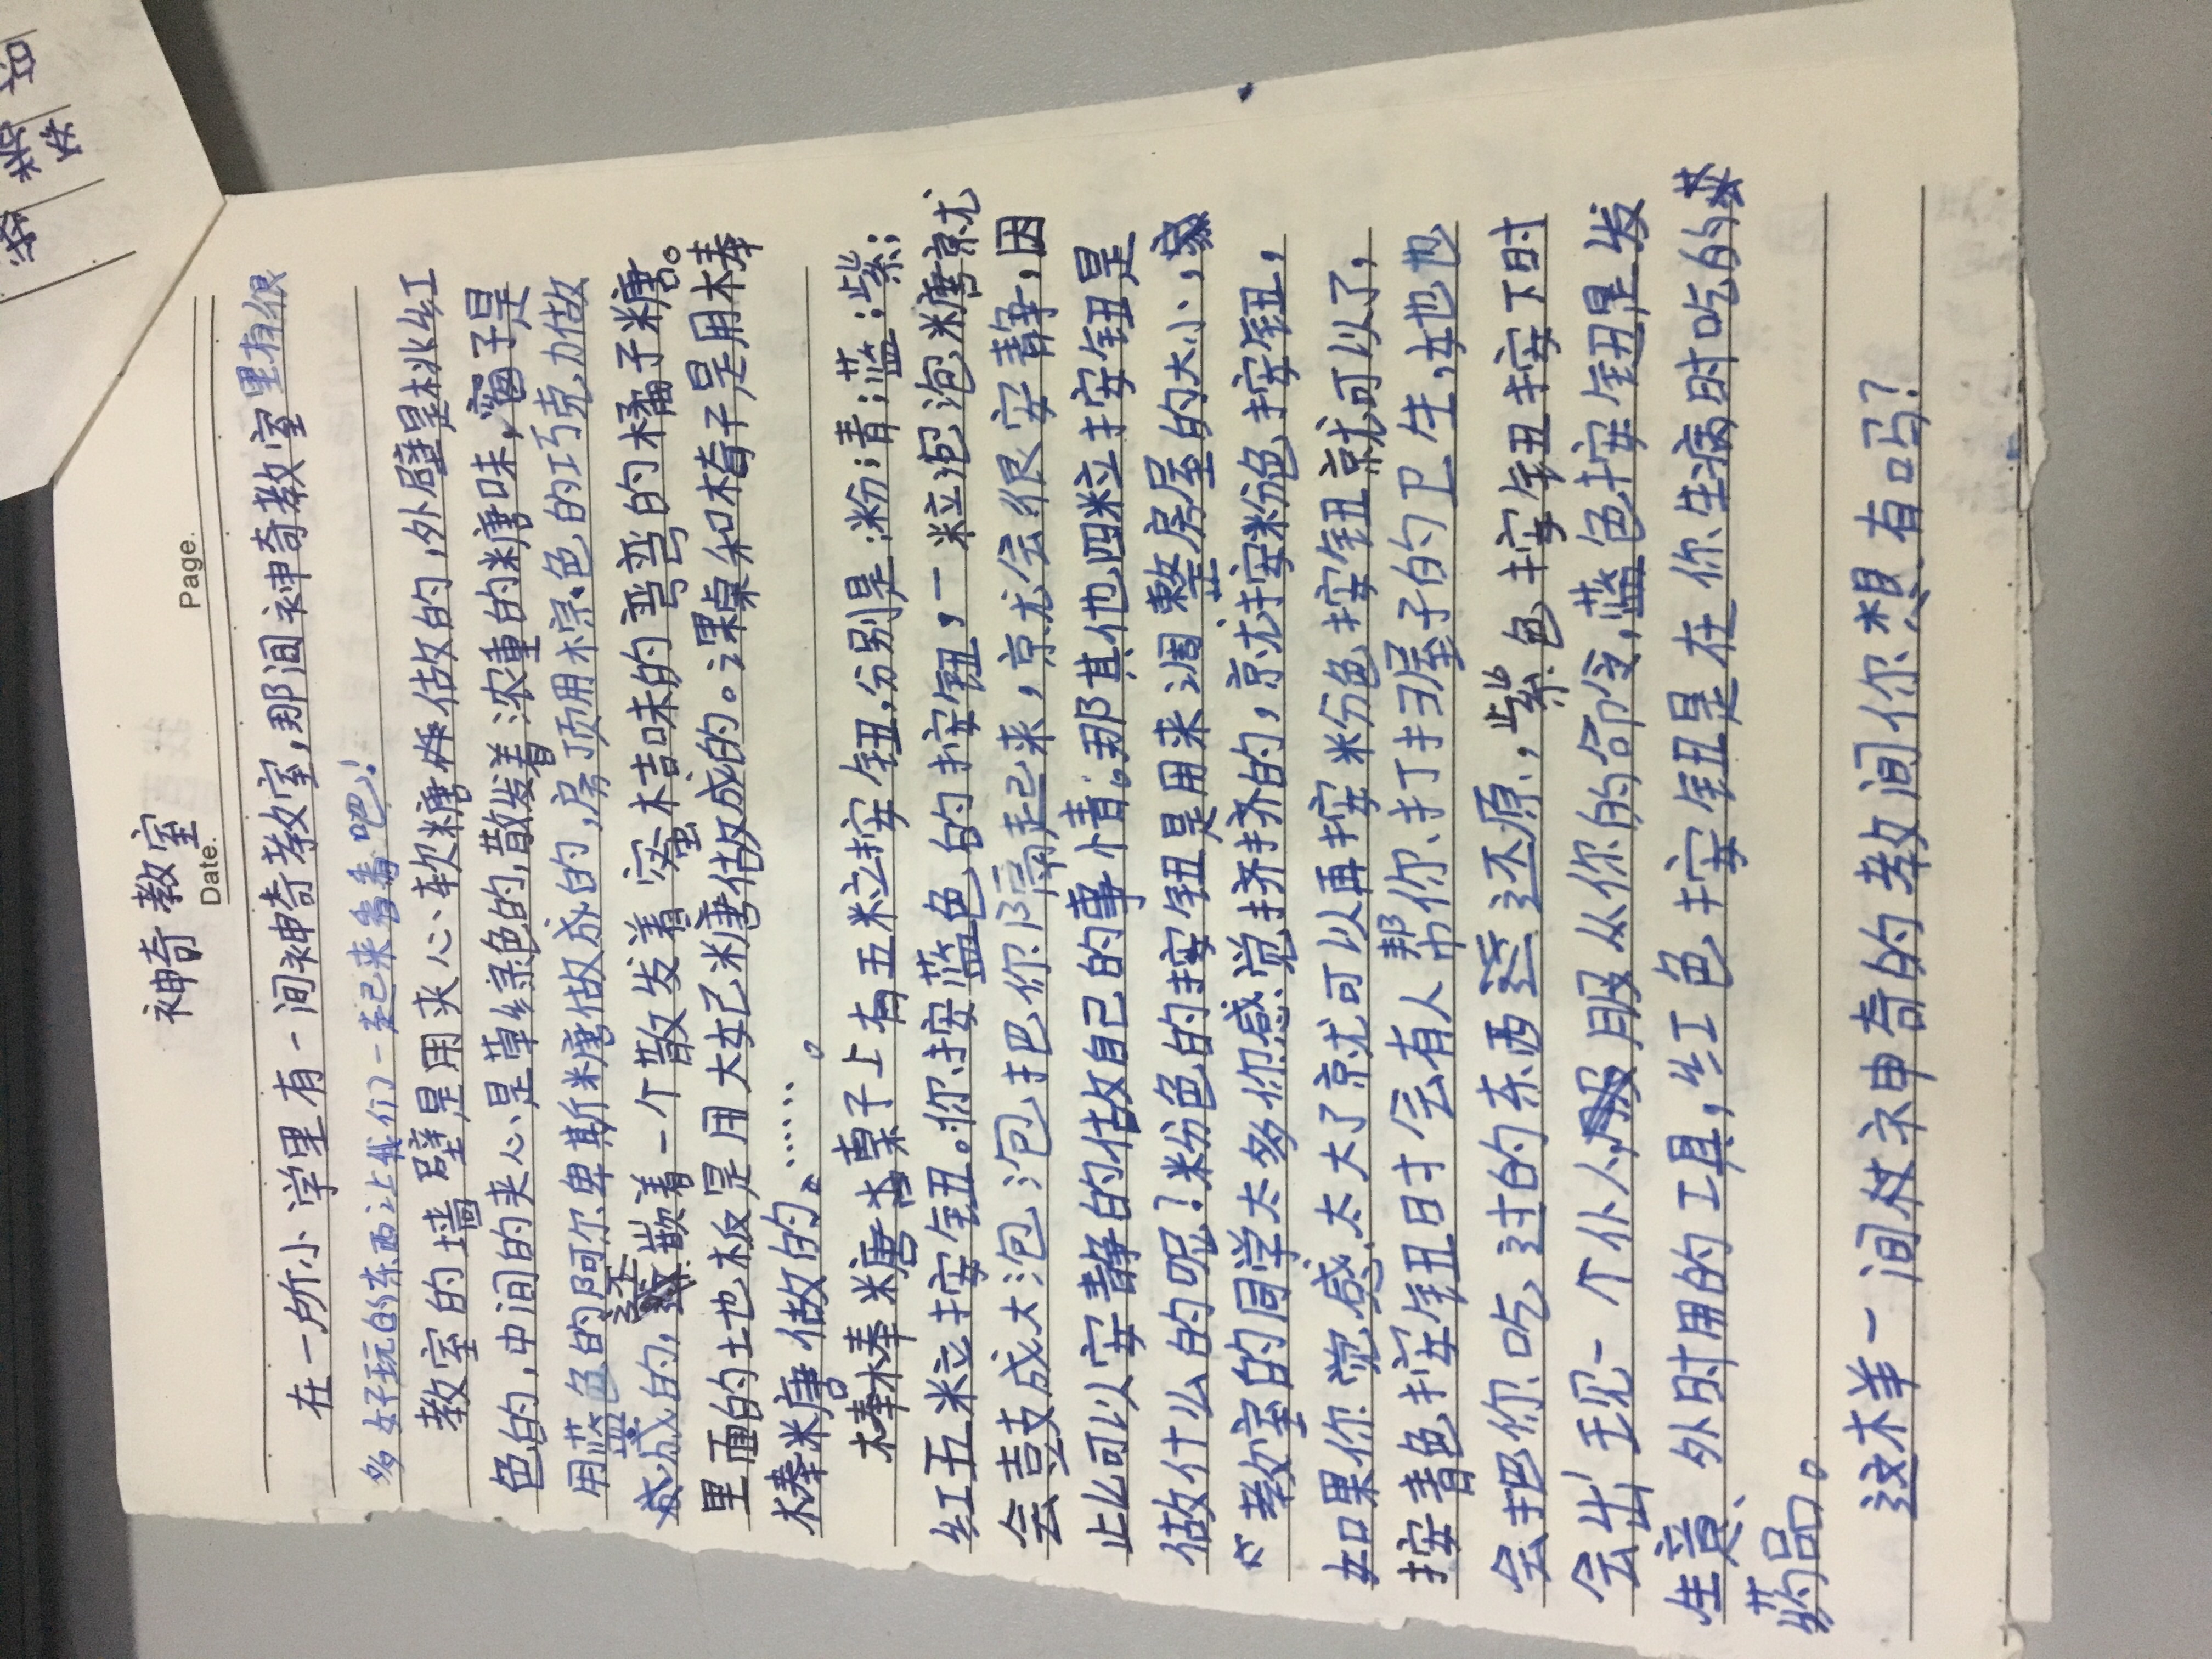 神奇教室
Date.
Page.
在一所小学里有一间神奇教室,那间神奇教室里有很
多好玩的东西让我们一起来看看吧!
教室的墙壁是用夹心软糖做的,外壁是桃红
色的,中间的夹心是草绿色的,散发着浓重的糖味,窗子是
用蓝色的阿尔卑斯糖做成的,房顶用棕色的巧克力做
成的,还嵌着一个散发着蜜桔味的弯弯的橘子糖。
里面的土也板是用大妃糖做成的。课桌和椅子是用棒
棒糖做的。……。
棒棒糖桌子上有五粒按钮,分别是:粉;青;蓝;紫;
红五粒按钮。你按蓝色的按钮,一粒泡泡糖就
会鼓成大泡泡把你隔起来,就会很安静,因
此可以安静的做自己的事情。那其他四粒按钮是
做什么的呢?粉色的按钮是用来调整房屋的大小,
教室的同学太多你感觉挤挤的,就按粉色按钮,
如果你觉感太大了就可以再按粉色按钮就可以了,
按青色按钮时会有人帮你打扫屋子的卫生,她也
会把你吃过的东西还原,紫色按钮按下时
会出现一个仆人服从你的命令,蓝色按钮是发
生意外时用的工具,红色按钮是在你生病时吃的
药品。
这样一间神奇的教间你想有吗?